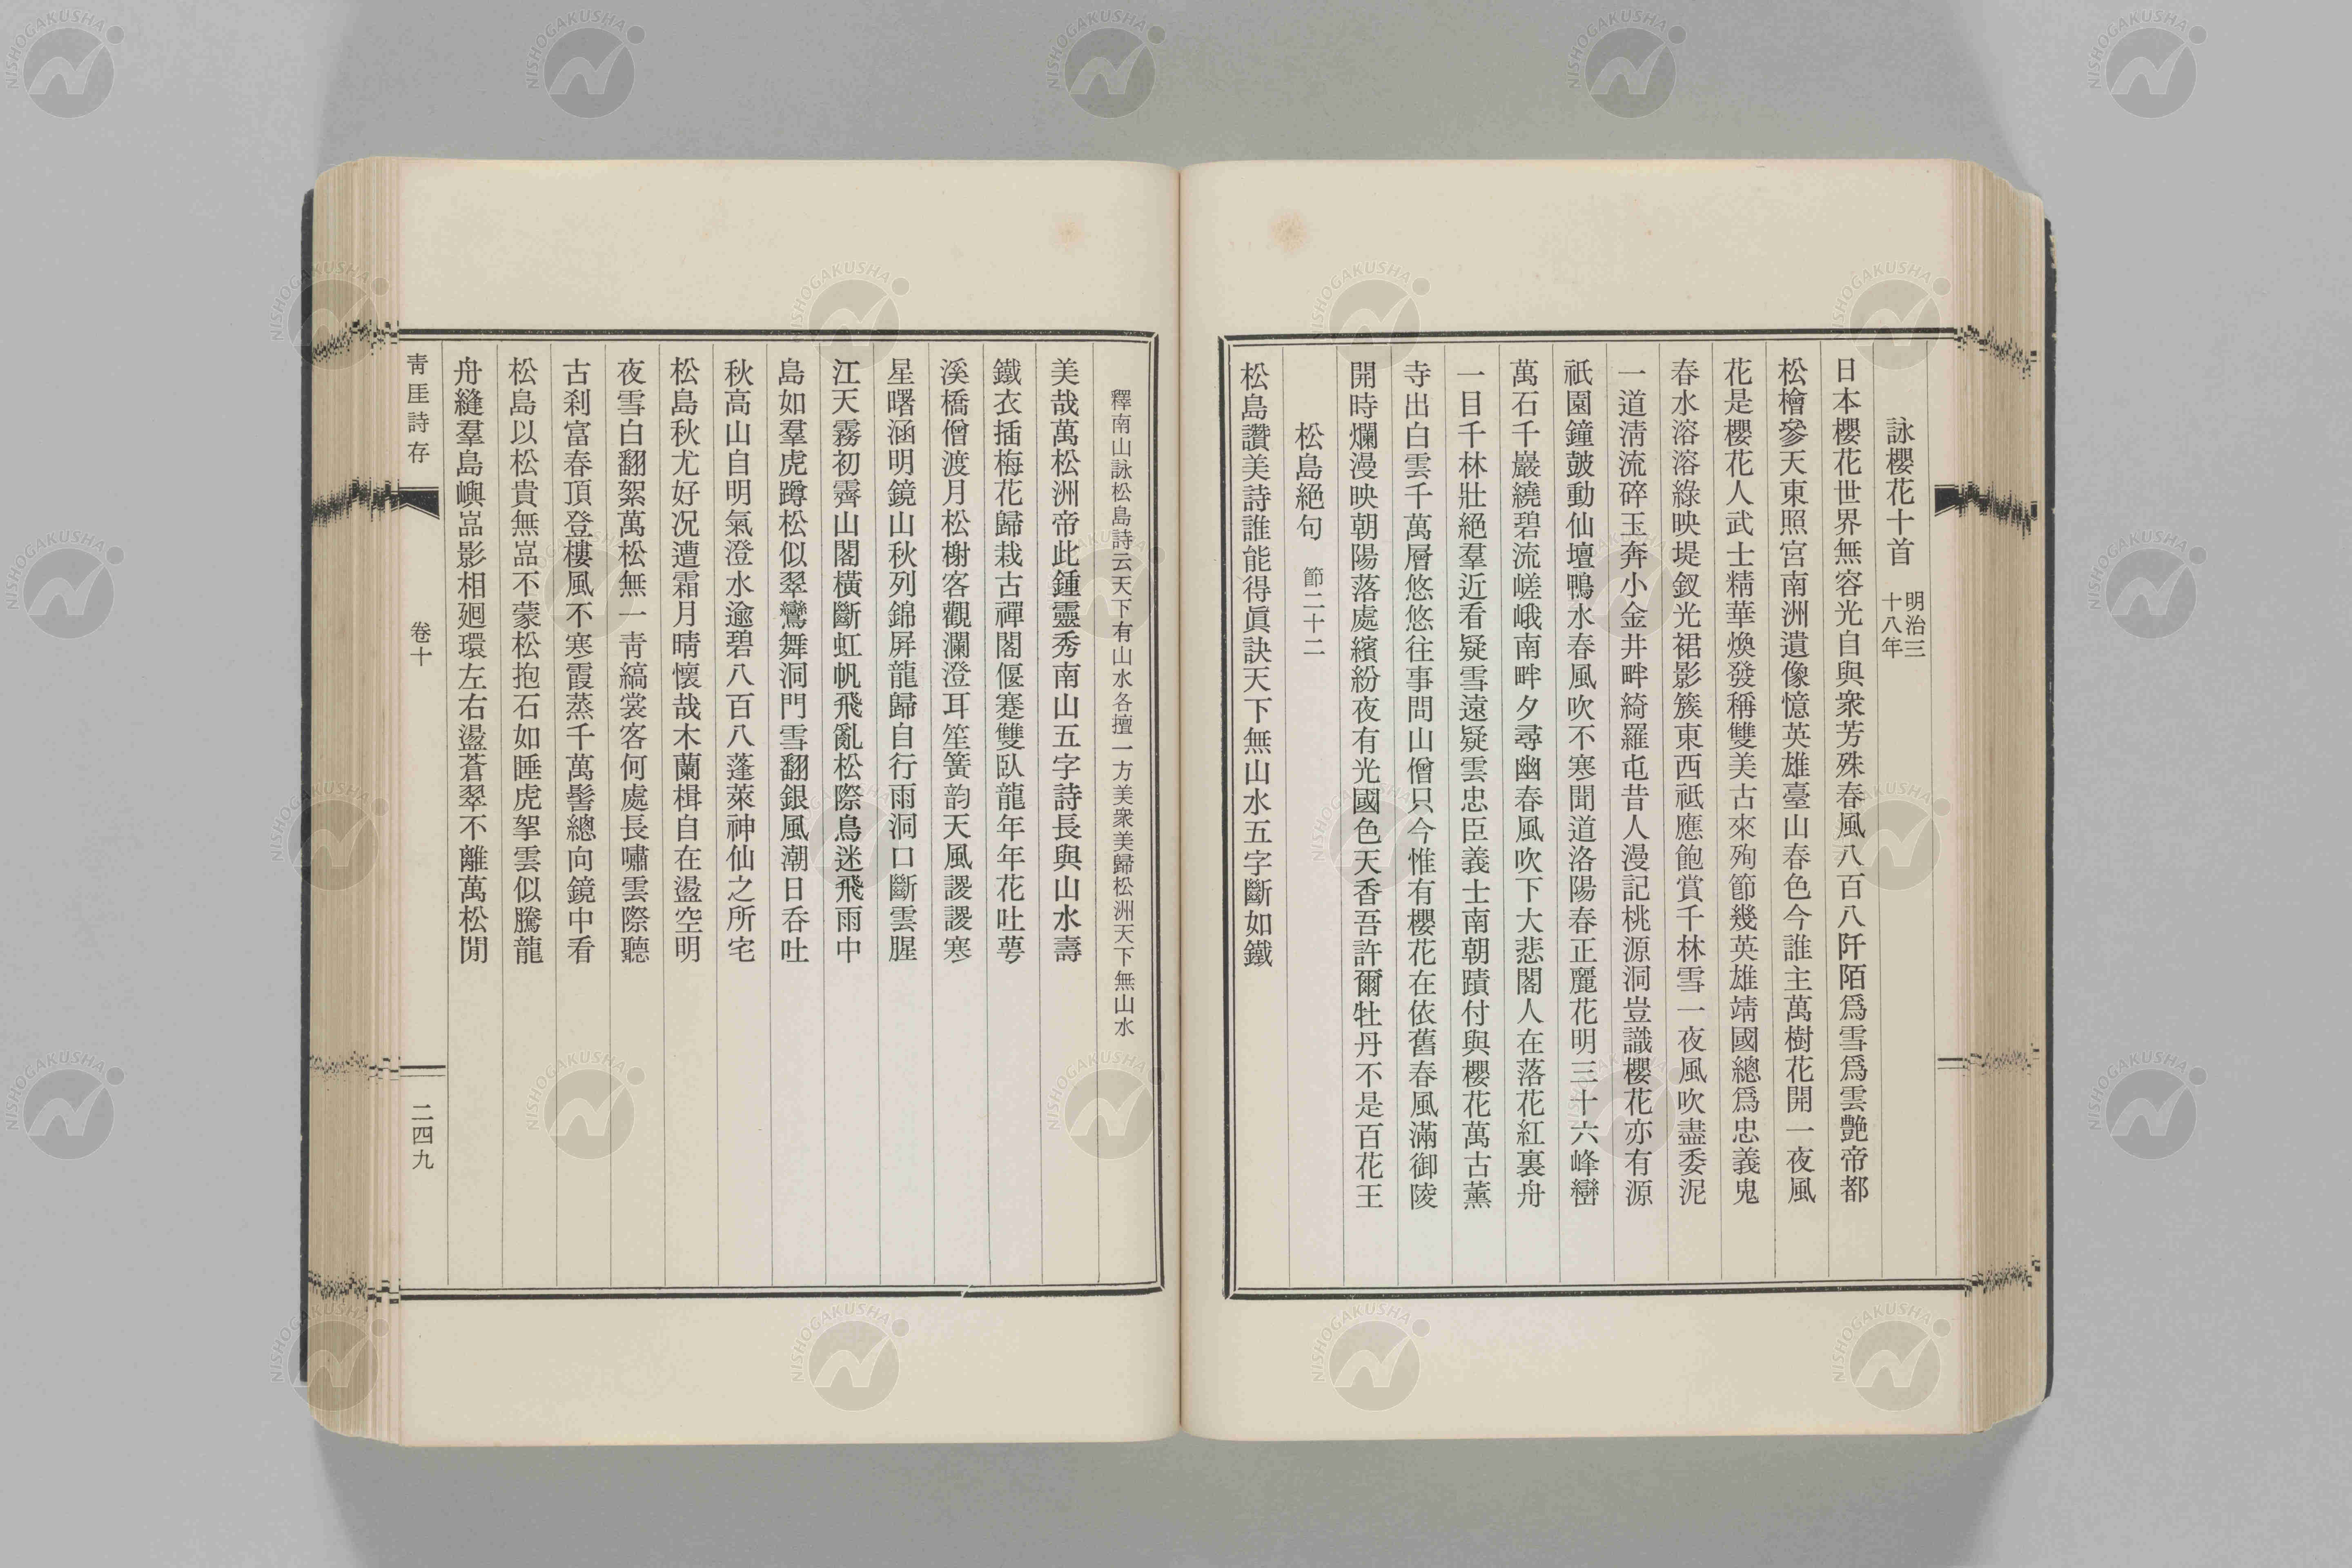 詠櫻花十首 明治三十八年
日本櫻花世界無容光自與衆芳殊春風八百八阡陌爲雪爲雲艷帝都
松檜參天東照宮南洲遺像憶英雄臺山春色今誰主萬樹花開一夜風
花是櫻花人武士精華煥發稱雙美古來殉節幾英雄靖國總爲忠義鬼
春水溶溶綠映堤釵光裙影簇東西祇應飽賞千林雪一夜風吹盡委泥
一道淸流碎玉奔小金井畔綺羅屯昔人漫記桃源洞豈識櫻花亦有源
祇園鐘皷動仙壇鴨水春風吹不寒聞道洛陽春正麗花明三十六峰巒
萬石千巖繞碧流嵯峨南畔夕尋幽春風吹下大悲閣人在落花紅裏舟
一目千林壯絕羣近看疑雪遠疑雲忠臣義士南朝蹟付與櫻花萬古薰
寺出白雲千萬層悠悠往事問山僧只今惟有櫻花在依舊春風滿御陵
開時爛漫映朝陽落處繽紛夜有光國色天香吾許爾牡丹不是百花王
松島絕句 節二十二
松島讚美詩誰能得眞訣天下無山水五字斷如鐵
釋南山詠松島詩云天下有山水各擅一方美衆美歸松洲天下無山水
美哉萬松洲帝此鍾靈秀南山五字詩長與山水壽
鐵衣插梅花歸栽古禪閣偃蹇雙臥龍年年花吐萼
溪橋僧渡月松榭客觀瀾澄耳笙簧韵天風謖謖寒
星曙涵明鏡山秋列錦屛龍歸自行雨洞口斷雲腥
江天霧初霽山閣橫斷虹帆飛亂松際鳥迷飛雨中
島如羣虎蹲松似翠鸞舞洞門雪翻銀風潮日呑吐
秋高山自明氣澄水逾碧八百八蓬萊神仙之所宅
松島秋尤好况遭霜月晴懷哉木蘭楫自在盪空明
夜雪白翻絮萬松無一靑縞裳客何處長嘯雲際聽
古刹富春頂登樓風不寒霞蒸千萬髻總向鏡中看
松島以松貴無嵓不蒙松抱石如睡虎拏雲似騰龍
舟縫羣島嶼嵓影相廻環左右盪蒼翠不離萬松閒
靑厓詩存 卷十 二四九